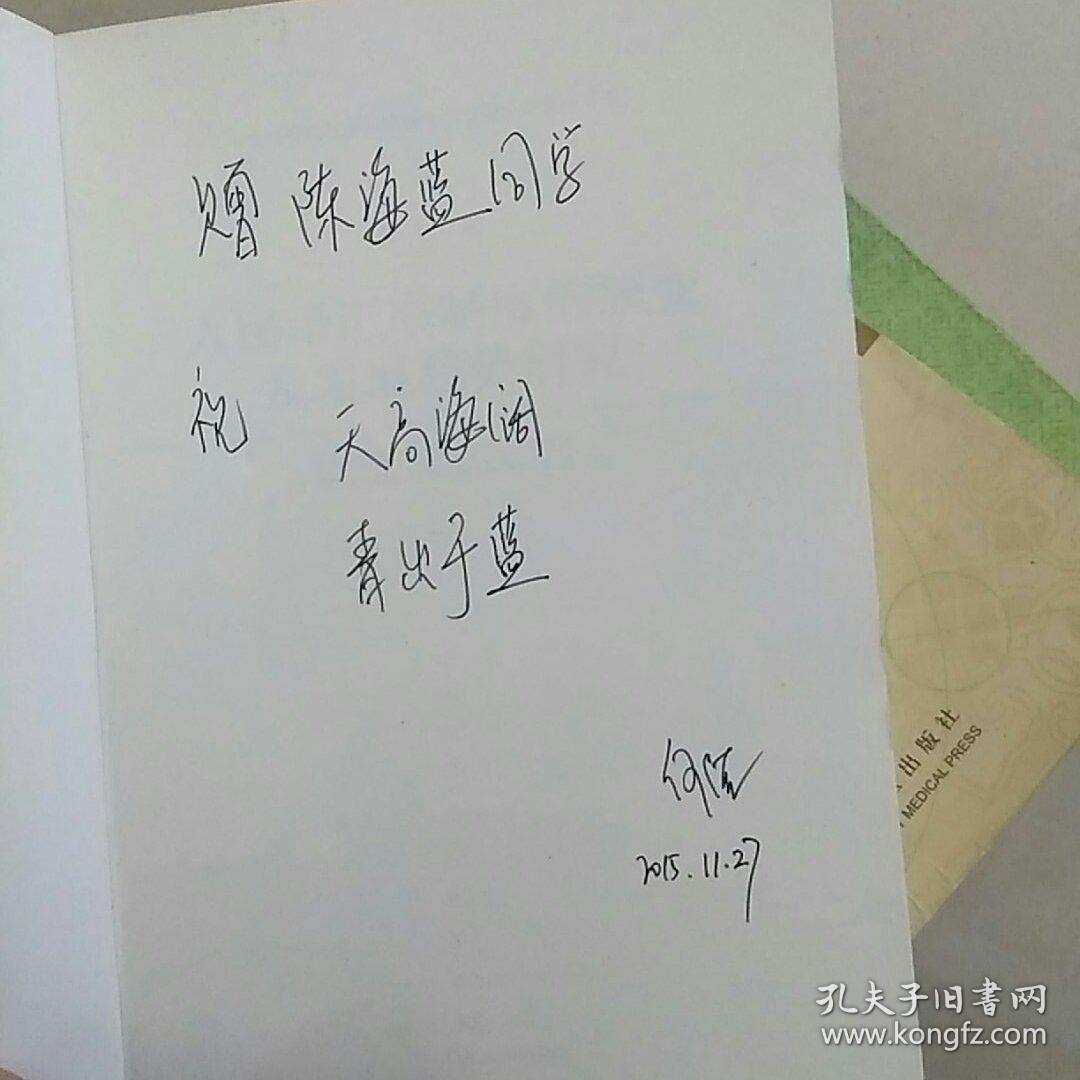 赠 陈海蓝同学
祝 天高海阔
青出于蓝
2015.11.27
出版社
MEDICAL PRESS
孔夫子旧书网
www.kongfz.com